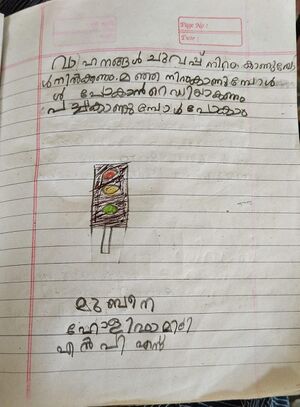 Page No :
Date :
വാഹനങ്ങൾ ചുവപ്പ് നിറം കാണുമ്പോ
ൾ നിൽക്കണം. മഞ്ഞ നിറം കാണുമ്പോൾ
ൾ പോകാൻ റെഡിയാകണം
പച്ച കാണുമ്പോൾ പോകാം
മുബീന
ഹോളിഫാമിലി
എൻ പി എൻ